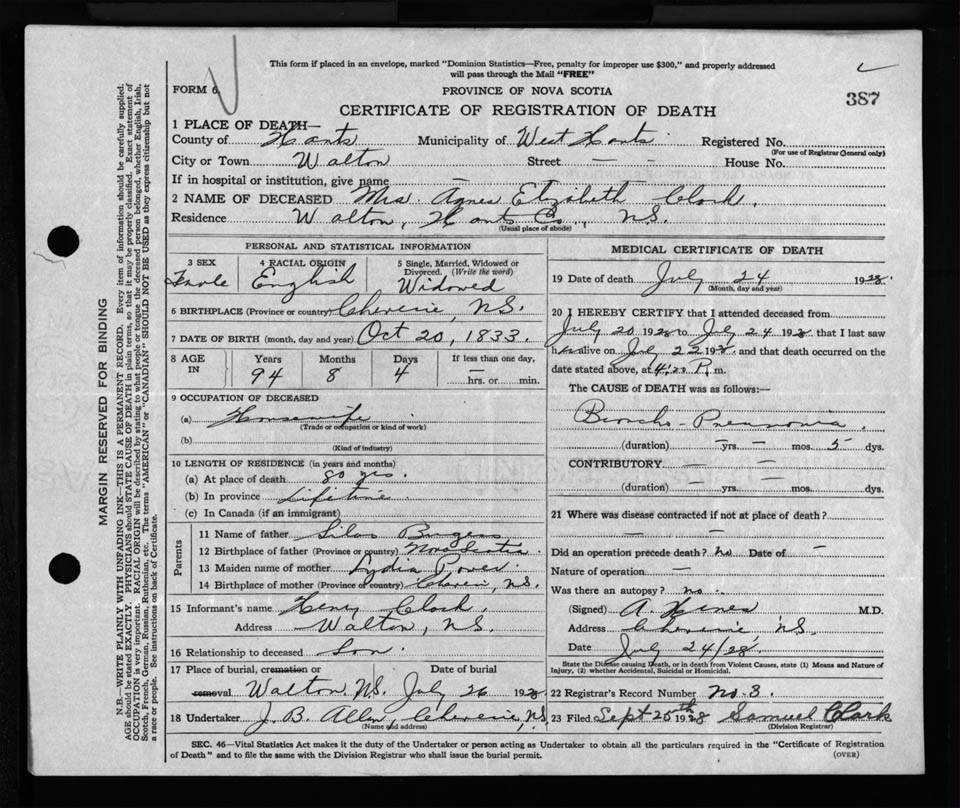 This form if placed in an envelope, marked "Dominion Statistics—Free, penalty for improper use $300," and properly addressed
will pass through the Mail "FREE"
FORM 6.
PROVINCE OF NOVA SCOTIA
387
CERTIFICATE OF REGISTRATION OF DEATH
1 PLACE OF DEATH—
County of Hants Municipality of West Hants Registered No.
(For use of Registrar General only)
City or Town Walton Street — — House No.
If in hospital or institution, give name —
2 NAME OF DECEASED Mrs. Agnes Elizabeth Clark.
Residence Walton, Hants Co., N.S.
(Usual place of abode)
PERSONAL AND STATISTICAL INFORMATION
3 SEX 4 RACIAL ORIGIN 5 Single, Married, Widowed or
Divorced. (Write the word)
English Widowed
6 BIRTHPLACE (Province or country) Cheverie, N.S.
7 DATE OF BIRTH (month, day and year) Oct 20, 1833.
8 AGE IN Years Months Days If less than one day,
94 8 4 — hrs. or min.
9 OCCUPATION OF DECEASED
(a) Housewife
(Trade or occupation or kind of work)
(b)
(Kind of industry)
10 LENGTH OF RESIDENCE (in years and months)
(a) At place of death 80 yrs.
(b) In province Lifetime
(c) In Canada (if an immigrant)
Parents
11 Name of father Silas Burgess
12 Birthplace of father (Province or country) Nova Scotia
13 Maiden name of mother Lydia Power
14 Birthplace of mother (Province or country) Cheverie, N.S.
15 Informant's name Henry Clark.
Address Walton, N.S.
16 Relationship to deceased Son
17 Place of burial, cremation or Date of burial
removal Walton N.S. July 26 1928
18 Undertaker J. B. Allen, Cheverie, N.S.
(Name and address)
MEDICAL CERTIFICATE OF DEATH
19 Date of death July 24 1928
(Month, day and year)
20 I HEREBY CERTIFY that I attended deceased from
July 20 1928 to July 24 1928 that I last saw
alive on July 22 192 , and that death occurred on
date stated above, at P. m.
The CAUSE of DEATH was as follows:—
Broncho-Pneumonia.
(duration) — yrs. — mos. 5 dys.
CONTRIBUTORY — —
(duration) — yrs. — mos. dys.
21 Where was disease contracted if not at place of death?
— —
Did an operation precede death? no Date of —
Nature of operation —
Was there an autopsy? no.
(Signed) A. M.D.
Address Cheverie N.S.
Date July 24/28
State the Disease causing Death, or in death from Violent Causes, state (1) Means and Nature of
Injury, (2) whether Accidental, Suicidal or Homicidal.
22 Registrar's Record Number No. 3.
23 Filed Sept 25th 1928 Samuel Clark
(Division Registrar)
SEC. 46—Vital Statistics Act makes it the duty of the Undertaker or person acting as Undertaker to obtain all the particulars required in the "Certificate of Registration
of Death" and to file the same with the Division Registrar who shall issue the burial permit.
(OVER)
MARGIN RESERVED FOR BINDING
N.B.—WRITE PLAINLY WITH UNFADING INK—THIS IS A PERMANENT RECORD. Every item of information should be carefully supplied.
AGE should be stated EXACTLY. PHYSICIANS should STATE CAUSE OF DEATH in plain terms, so that it may be properly classified. Exact statement of
OCCUPATION is very important. RACIAL ORIGIN will be described by stating to what people or tongue the deceased person belonged, whether English, Irish,
Scotch, French, German, Russian, Ruthenian, etc. The terms "AMERICAN" or "CANADIAN" SHOULD NOT BE USED as they express citizenship but not
a race or people. See instructions on back of Certificate.